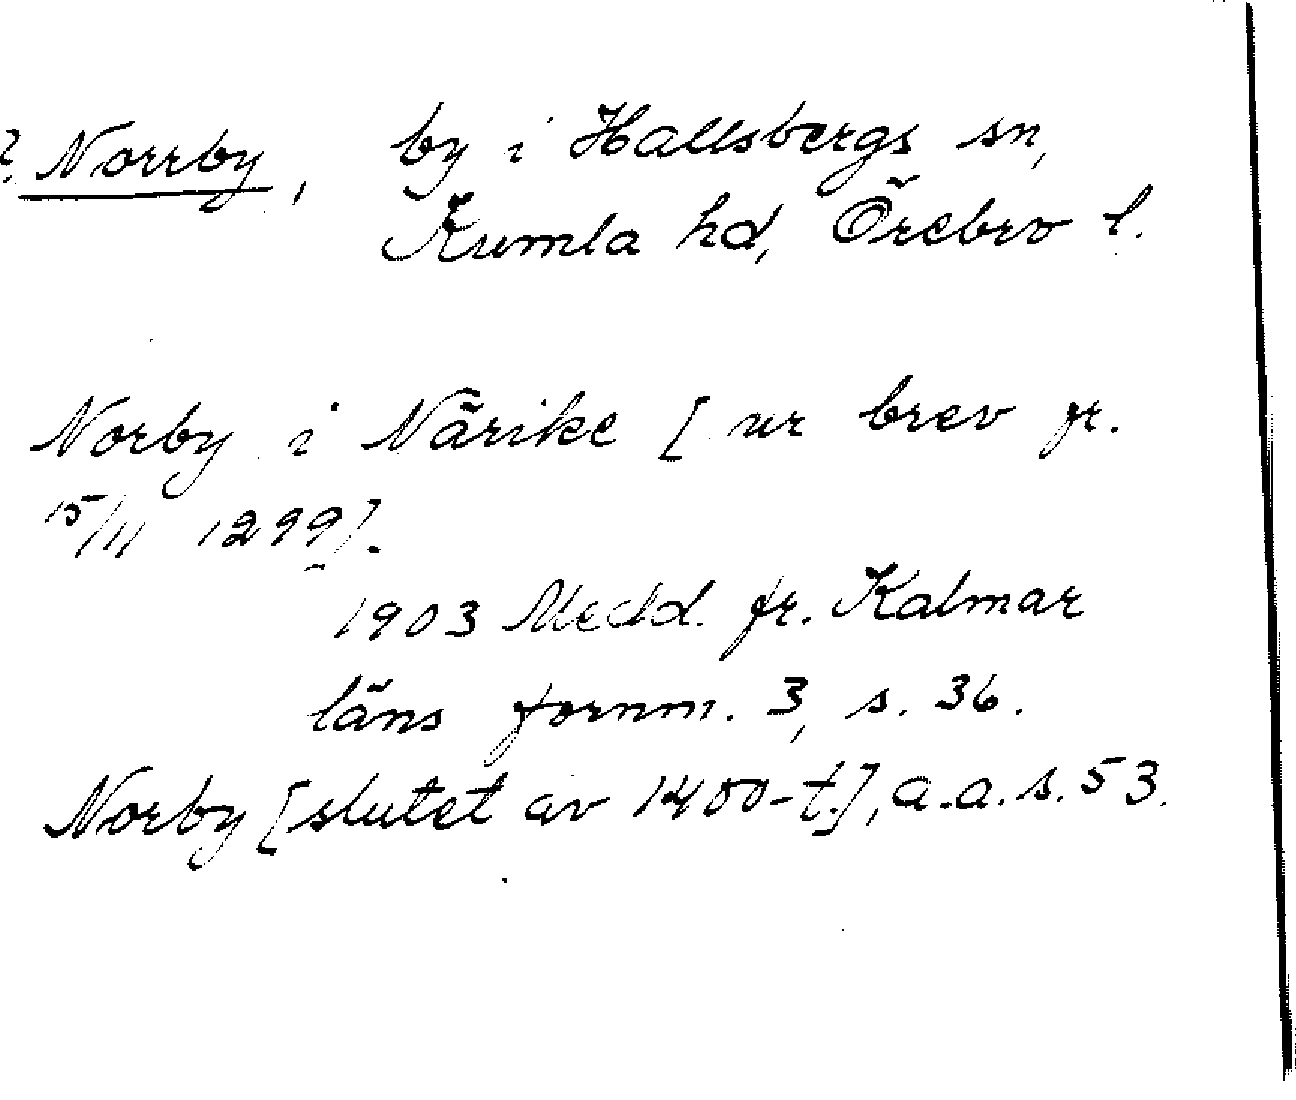 ? Norrby, by i Hallsbergs sn,
Kumla hd, Örebro l.
Norby i Närike [ur brev fr.
15/11 1299].
1903 Medd. fr. Kalmar
läns fornm. 3, s. 36.
Norby [slutet av 1400-t.], a.a. s. 53.